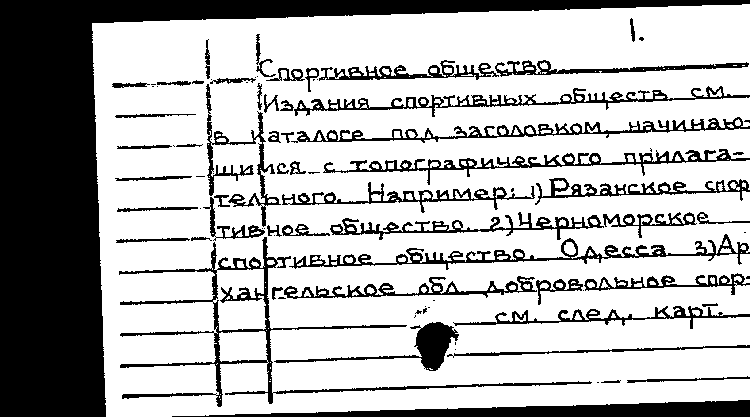 1.
Спортивное общество
Издания спортивных обществ см.
в каталоге под заголовком, начинаю-
щимся с топографического прилага-
тельного. Например: 1) Рязанское спор
тивное общество. 2) Черноморское
спортивное общество. Одесса 3) Ар
хангельское обл. добровольное спор-
см. след. карт.